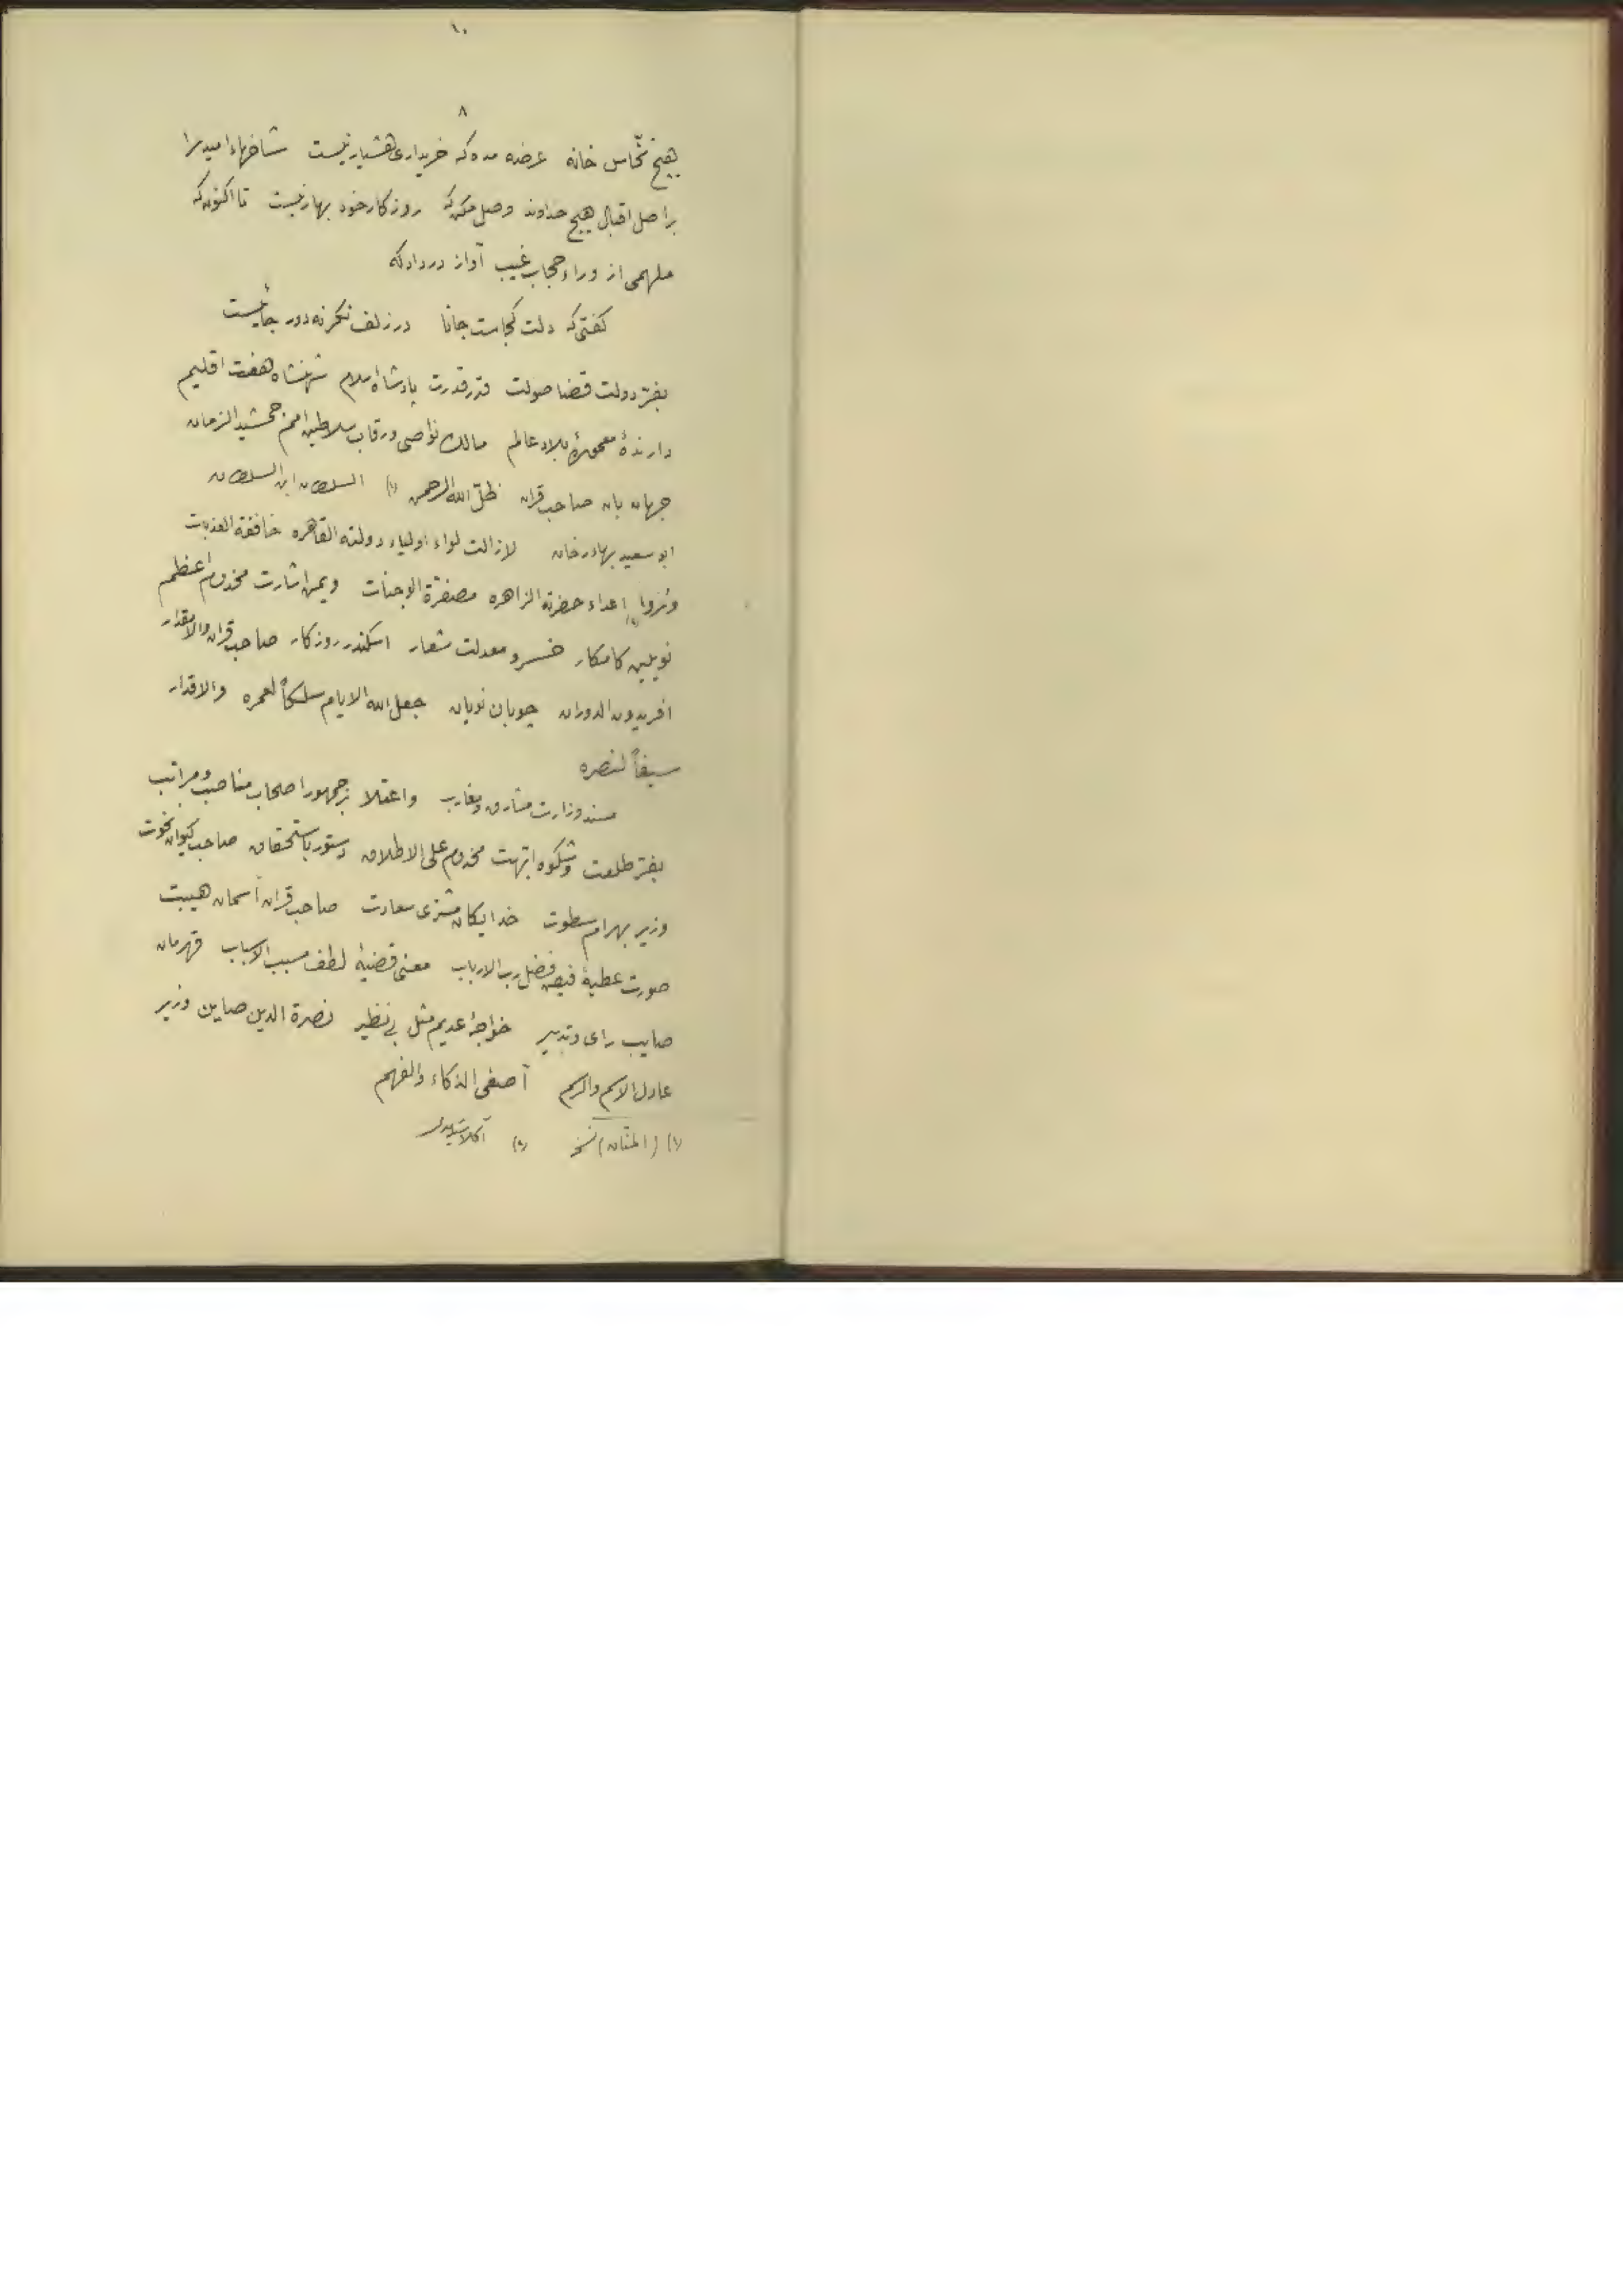 ١٠
٨
بهیچ نخّاس خانه عرضه مده که خریداری هشیار نیست شاخهاء امید را
بر اصل اقبال هیچ خداوند وصل مکن که روزکار خود بهار نیست تا اکنون که
ملهمی از وراء حجاب غیب آواز در داد که
کفتی که دلت کجاست جانا در زلف نکر نه دور جائیست
بفرّ دولت قضا صولت قدر قدرت پادشاه اسلام شهنشاه هفت اقلیم
دارندهٔ معمورهٔ بلاد عالم مالک نواصی و رقاب سلاطین امم جمشید الزمان
جهان بان صاحب قران ظلّ الله الرحمن (١) السلطان ابن السلطان
ابو سعید بهادر خان لا زالت لواء اولیاء دولته القاهره خافقة العذبات
اعداء حضرته الزاهره مصفرّة الوجنات و یمن اشارت مخدوم اعظم
(٢)
نویین کامکار خسرو معدلت شعار اسکندر روزکار صاحب قران والامقدار
افریدون الدوران چوبان نویان جعل الله الایام سلکاً لعمره والاقدار
سیفاً لنصره
مسند وزارت مشارق و مغارب و اعتلا بر جمهور اصحاب مناصب و مراتب
بفرّ طلعت و شکوه ابّهت مخدوم علی الاطلاق دستور باستحقاق صاحب کیوان نخوت
وزیر بهرام سطوت خدایکان مشتری سعادت صاحب قران آسمان هیبت
صورت عطیهٔ فیض فضل رب الارباب معنی قضیهٔ لطف مسبب الاسباب قهرمان
صایب رای و تدبیر خواجهٔ عدیم مثل بی نظیر نصرة الدین صاین وزیر
عادل الاسم والرسم آصفی الذکاء والفهم
(١) (المنّان) نسخ (٢)